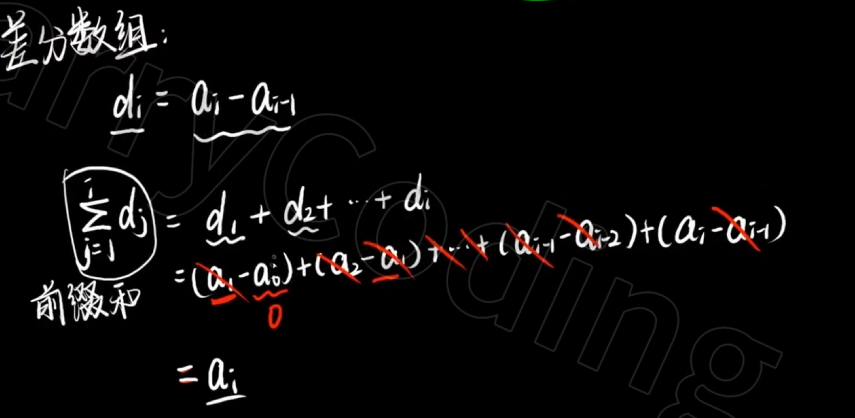 差分数组:
dᵢ = aᵢ - aᵢ₋₁
∑ⱼ₌₁ⁱ dⱼ = d₁ + d₂ + ⋯ + dᵢ
= (a₁ - a₀) + (a₂ - a₁) + ⋯ + (aᵢ₋₁ - aᵢ₋₂) + (aᵢ - aᵢ₋₁)
前缀和
0
= aᵢ
arryCoding